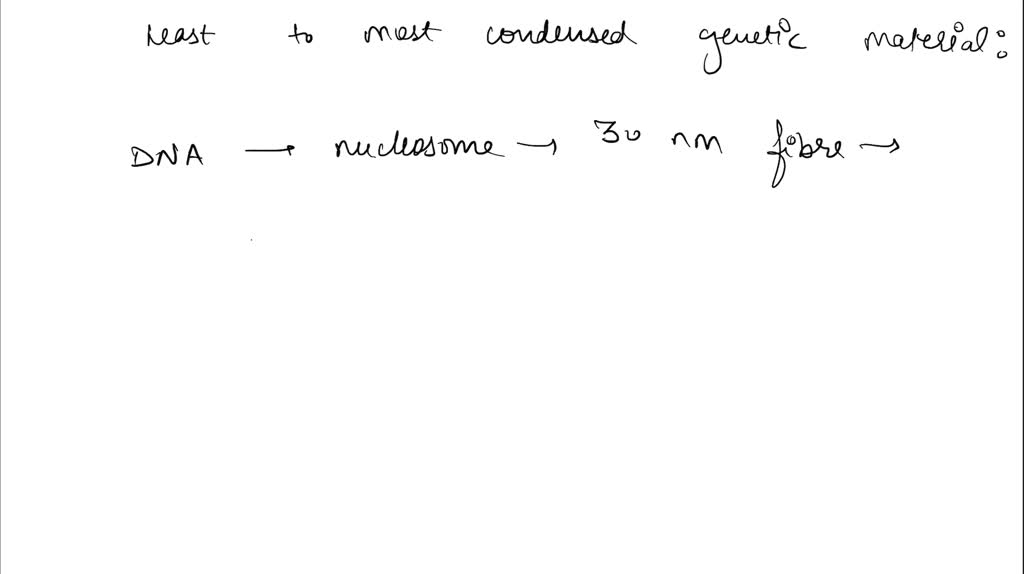 Least to most condensed genetic material:
DNA → nucleosome → 30 nm fibre →